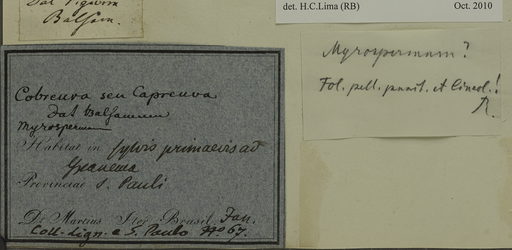 Dat Lignum
Balsam.
det. H.C.Lima (RB) Oct. 2010
Cobreuva seu Capreuva
dat Balsamum
Myrospermum
Habitat in sylvis primaevis ad
Ypanema
Provinciae S. Pauli
Dr Martius Iter Brasil. Jan.
Coll. Lign. e S. Paulo No 67.
Myrospermum?
Fol. pell. punct. et lineol.!